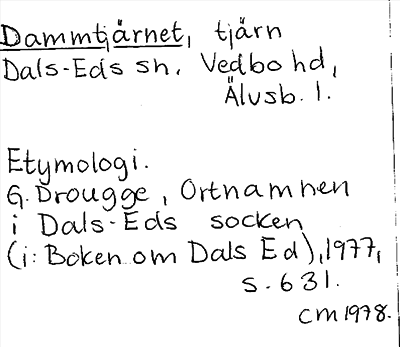 Dammtjärnet, tjärn
Dals-Eds sn, Vedbo hd,
Älvsb. l.
Etymologi.
G. Drougge, Ortnamnen
i Dals-Eds socken
(i: Boken om Dals Ed), 1977,
s. 631.
CM 1978.